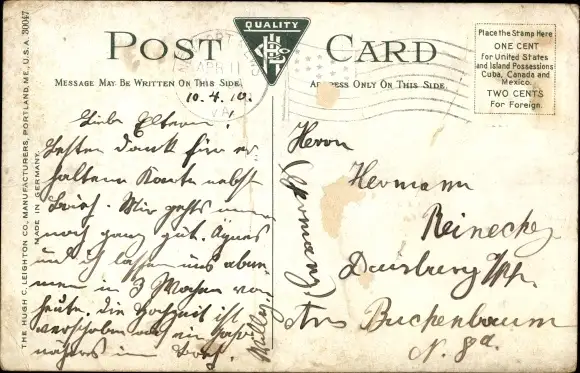 POST CARD
QUALITY
MESSAGE MAY BE WRITTEN ON THIS SIDE.
ADDRESS ONLY ON THIS SIDE.
Place the Stamp Here
ONE CENT
for United States
and Island Possessions
Cuba, Canada and
Mexico.
TWO CENTS
For Foreign.
THE HUGH C. LEIGHTON CO., MANUFACTURERS, PORTLAND, ME., U.S.A. 30047
MADE IN GERMANY.
APR 11
VA
10.4.10.
Liebe Eltern!
Besten Dank für er-
haltene Karte nebst
Brief. Mir gehts
noch ganz gut. Agnes
und ich lassen uns
men in 3 Wochen von
heute. Die Hochzeit ist
verschoben
näheres im Brief.
Willy.
Herrn
Hermann
Reinecke
Duisburg
(Germany)
Am Buchenbaum
N. 8a.